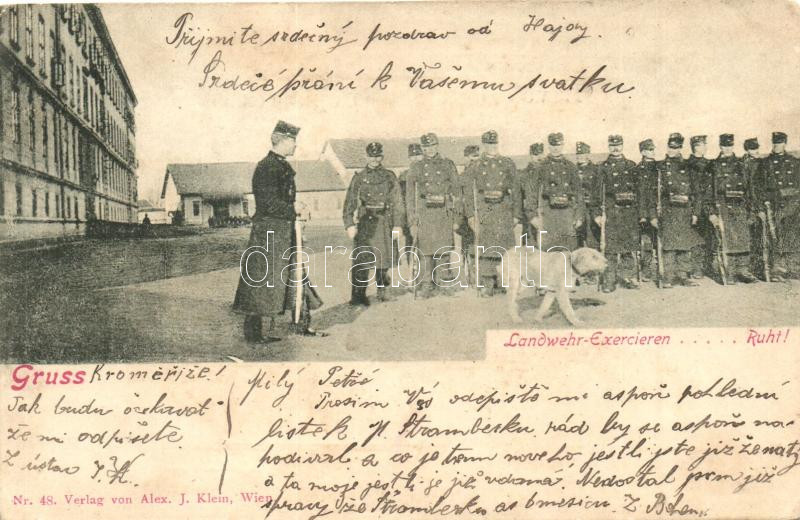 Přijmite srdečný pozdrav od Hajdy.
Srdečé přání k Vašemu svatku
darabanth
Landwehr-Exercieren ..... Ruht!
Gruss Kroměřiže!
Jak budu očekavat
že mi odpišete
Z ústav
Milý
Prosim Vás odepiště mi aspoň pohledni
listek Stramberku rád by se aspoň na
podival a co je tam noveho jestli jste již ženatý
a ta moje jestli je již vdaná. Nedostal jsem již
spravy ze Štramberku as 6 mesicu. Z
Nr. 48. Verlag von Alex. J. Klein, Wien